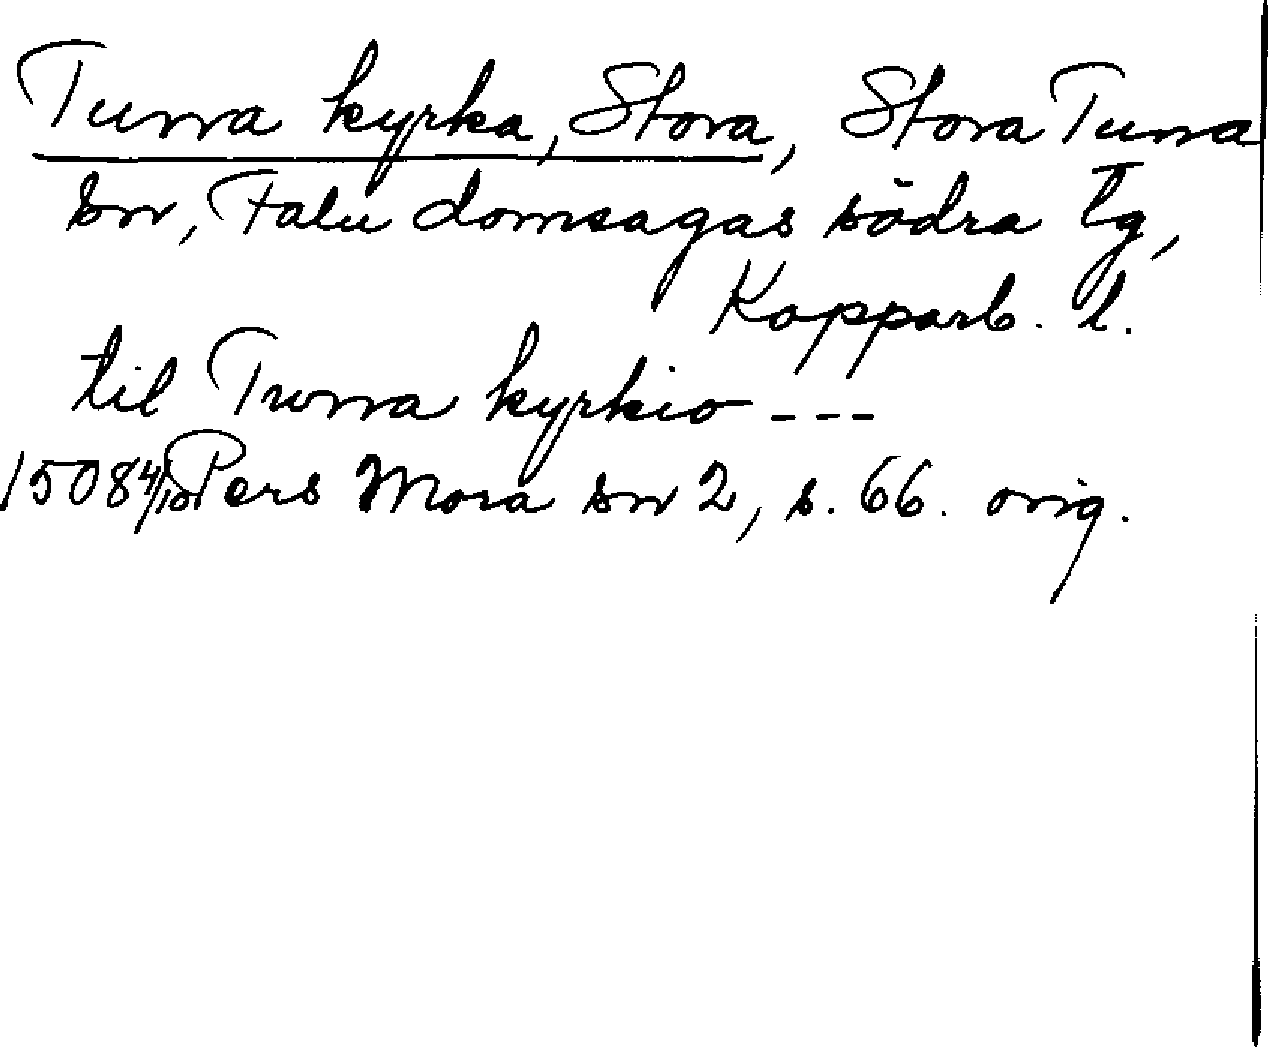 Tuna kyrka, Stora, Stora Tuna
sn, Falu domsagas södra tg,
Kopparb. l.
til Twna kyrkio ---
1508 4/10 Pers Mora sn 2, s. 66. orig.